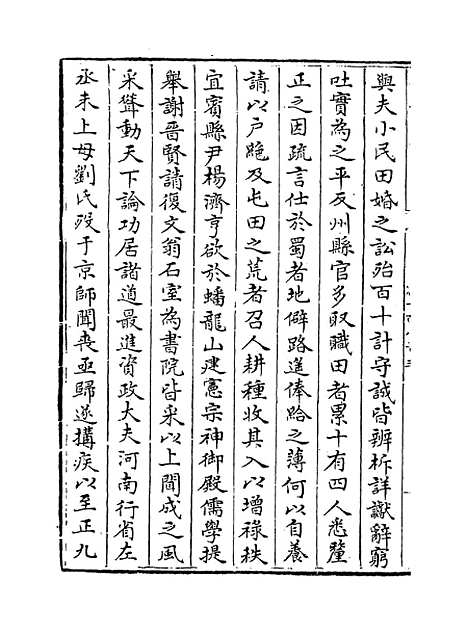 與夫小民田婚之訟殆百十計守誠皆辨析詳讞辭窮
吐實為之平反州縣官多取職田者累十有四人悉釐
正之因疏言仕於蜀者地僻路遥俸給之薄何以自養
請以戶絶及屯田之荒者召人耕種收其入以增祿秩
宜賓縣尹楊濟亨欲於蟠龍山建憲宗神御殿儒學提
舉謝晋賢請復文翁石室為書院皆采以上聞成之風
采聳動天下論功居諸道最進資政大夫河南行省左
丞未上母劉氏殁于京師聞喪亟歸遂搆疾以至正九